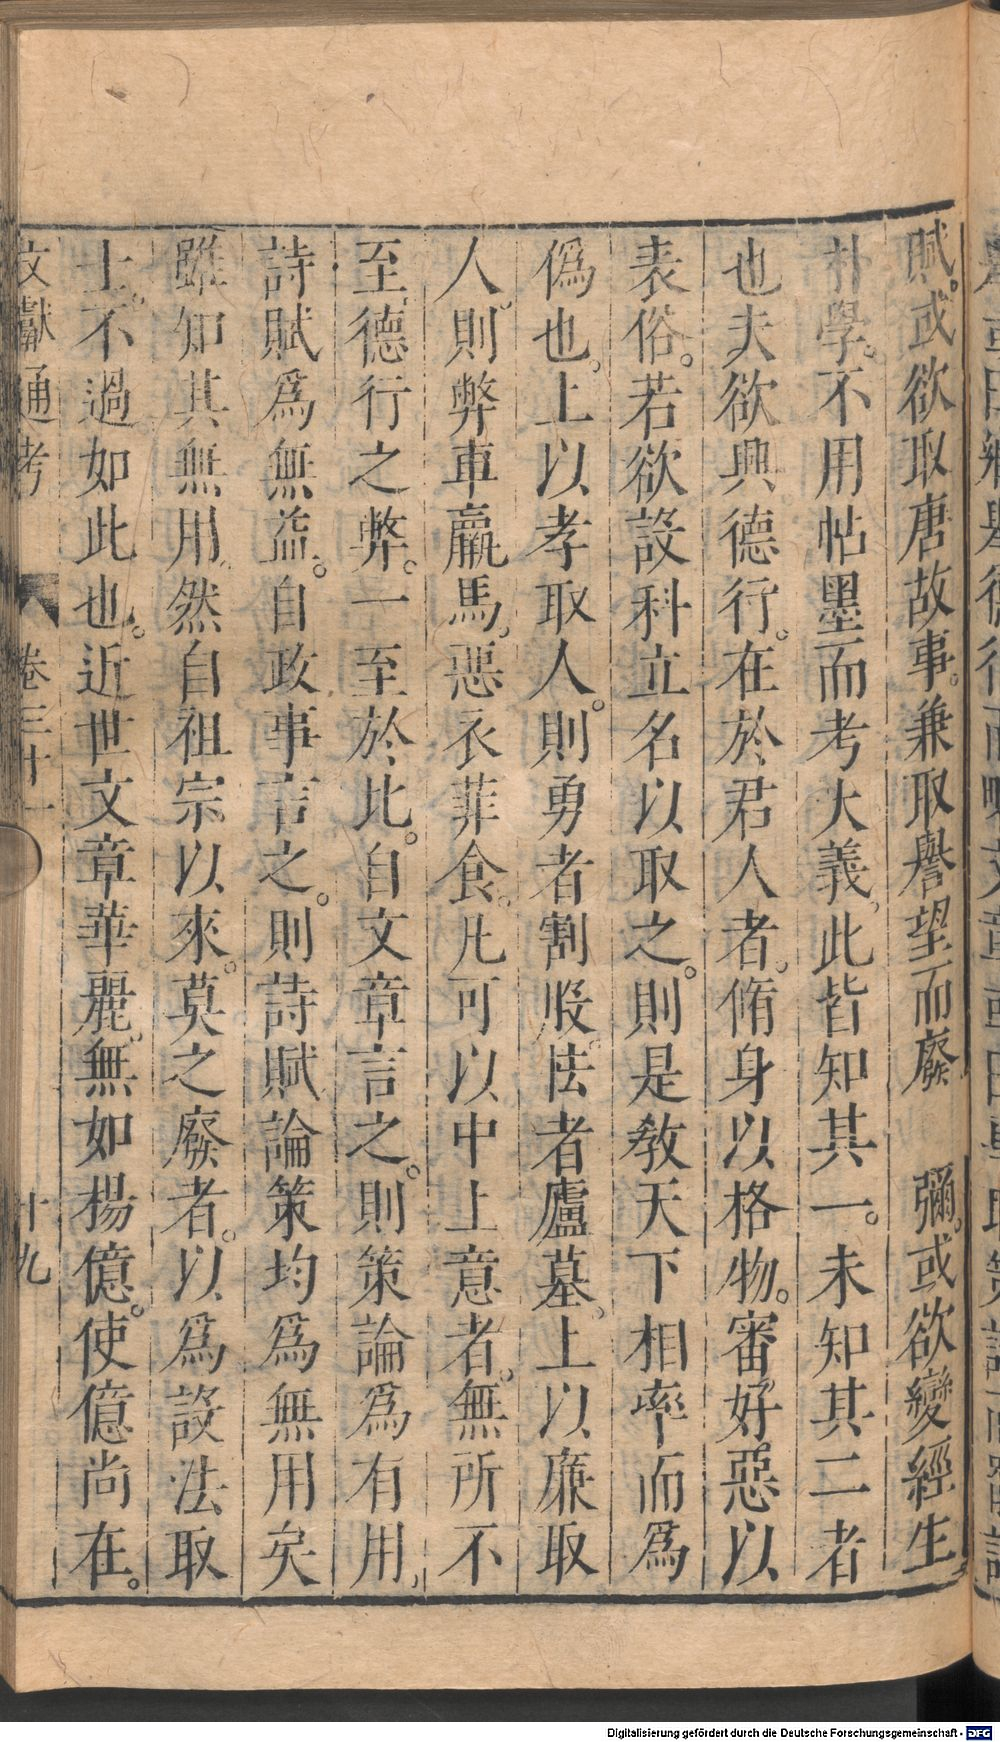 賦。或欲取唐故事。兼取譽望而廢 彌。或欲變經生
朴學。不用帖墨而考大義。此皆知其一。未知其二者
也夫欲興德行。在於君人者。脩身以格物。審好惡以
表俗。若欲設科立名以取之。則是敎天下相率而爲
僞也。上以孝取人。則勇者割股。怯者廬墓。上以廉取
人。則弊車羸馬。惡衣菲食。凡可以中上意者。無所不
至。德行之弊。一至於此。自文章言之。則策論爲有用。
詩賦爲無益。自政事言之。則詩賦論策均爲無用矣
雖知其無用。然自祖宗以來。莫之廢者。以爲設法取
士。不過如此也。近世文章華麗。無如楊億。使億尚在。
文獻通考 卷三十一 十九
Digitalisierung gefördert durch die Deutsche Forschungsgemeinschaft - DFG